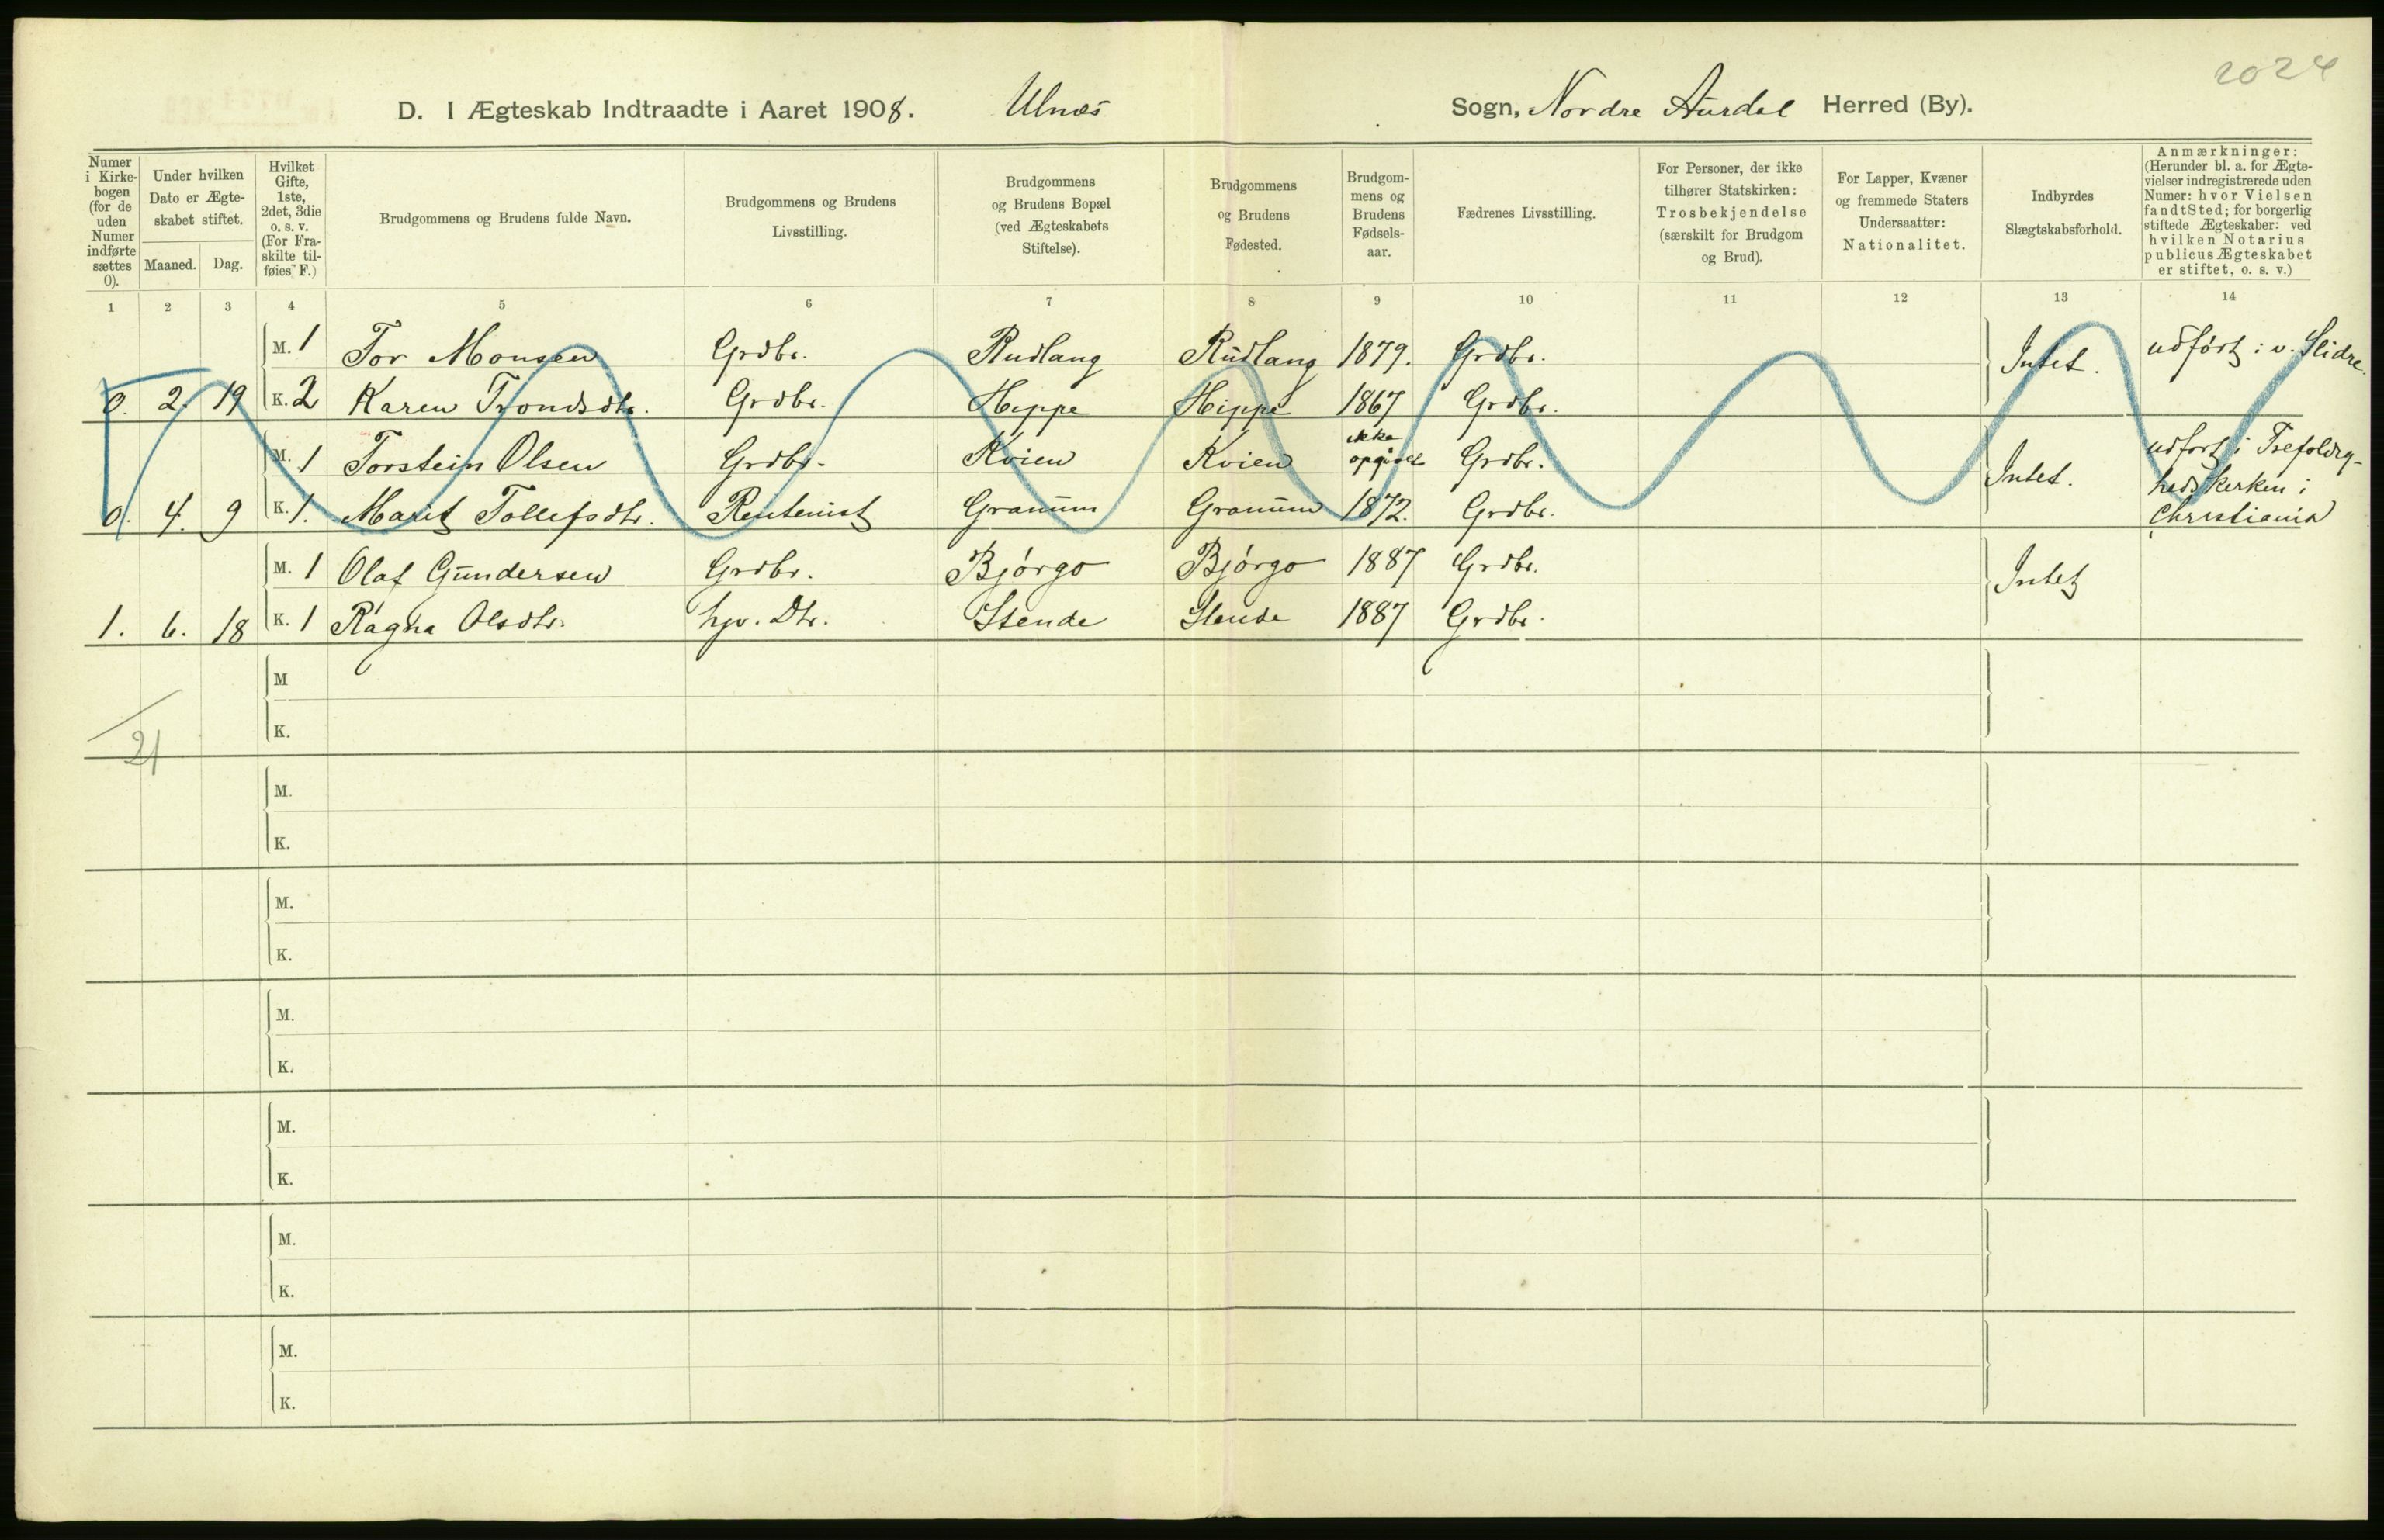 2024
D. I Ægteskab Indtraadte i Aaret 1908. Ulnæs Sogn, Nordre Aurdal Herred (By).
Numer i Kirkebogen (for de uden Numer indførte sættes 0).
Under hvilken Dato er Ægteskabet stiftet.
Maaned. Dag.
Hvilket Gifte, 1ste, 2det, 3die o. s. v. (For Fraskilte tilføies F.)
Brudgommens og Brudens fulde Navn.
Brudgommens og Brudens Livsstilling.
Brudgommens og Brudens Bopæl (ved Ægteskabets Stiftelse).
Brudgommens og Brudens Fødested.
Brudgommens og Brudens Fødselsaar.
Fædrenes Livsstilling.
For Personer, der ikke tilhører Statskirken: Trosbekjendelse (særskilt for Brudgom og Brud).
For Lapper, Kvæner og fremmede Staters Undersaatter: Nationalitet.
Indbyrdes Slægtskabsforhold.
Anmærkninger: (Herunder bl. a. for Ægtevielser indregistrerede uden Numer: hvor Vielsen fandt Sted; for borgerlig stiftede Ægteskaber: ved hvilken Notarius publicus Ægteskabet er stiftet, o. s. v.)
1 2 3 4 5 6 7 8 9 10 11 12 13 14
M. 1 Tor Monsen Grdbr. Rudlang Rudlang 1879. Grdbr. Intet. udført i v. Slidre.
0. 2. 19 K. 2 Karen Trondsdtr. Grdbr. Hippe Hippe 1867 Grdbr.
M. 1 Torstein Olsen Grdbr. Kvien Kvien ikke opgivet Grdbr. Intet. udført i Trefoldig-
0. 4. 9 K. 1. Marit Tollefsdtr. Rentenist Granum Granum 1872. Grdbr. hedskerken i
Christiania
M. 1 Olaf Gundersen Grdbr. Bjørgo Bjørgo 1887 Grdbr. Intet
1. 6. 18 K. 1 Ragna Olsdtr. hjv. Dtr. Stende Stende 1887 Grdbr.
M
21
K.
M.
K.
M.
K.
M.
K.
M.
K.
M.
K.
M.
K.